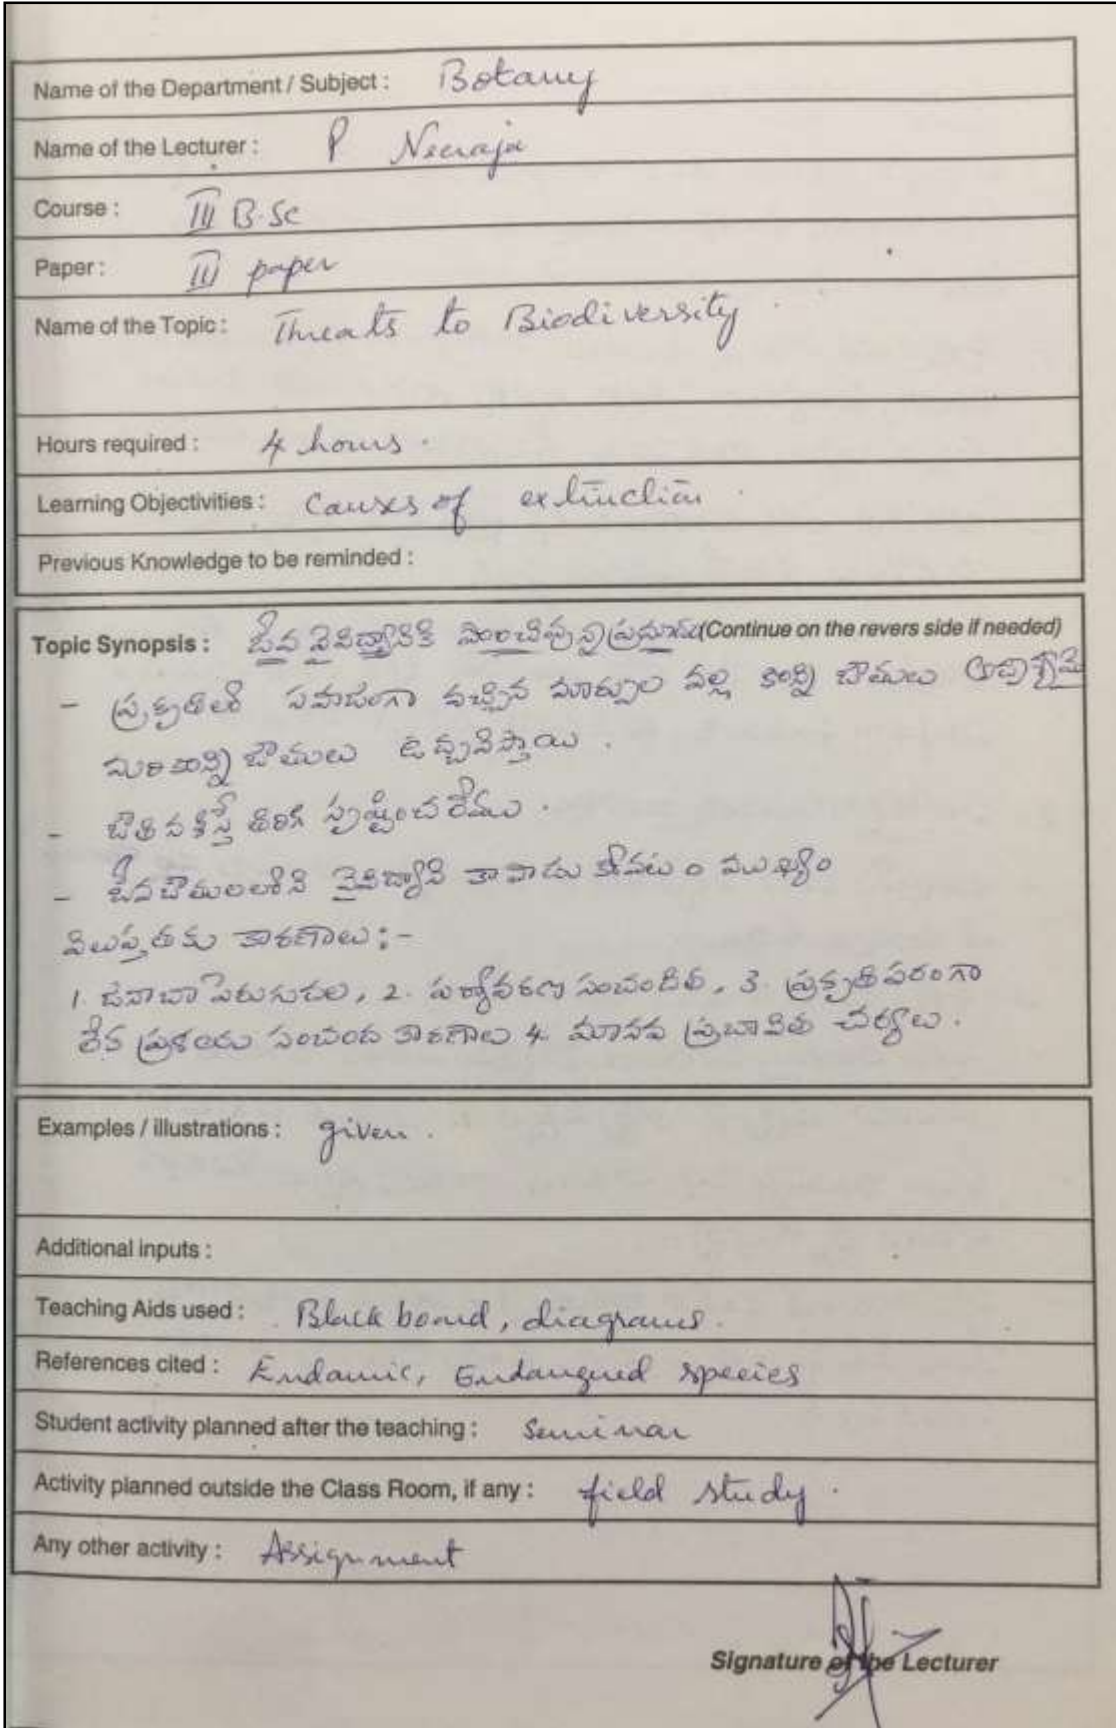 Name of the Department / Subject : Botany
Name of the Lecturer : P Neeraja
Course : III B.Sc
Paper : III paper
Name of the Topic : Threats to Biodiversity .
Hours required : 4 hours .
Learning Objectivities : Causes of extinction .
Previous Knowledge to be reminded :
Topic Synopsis : జీవ వైవిధ్యానికి పొంచివున్న ప్రమాదం (Continue on the revers side if needed)
- ప్రకృతిలో సహజంగా వచ్చిన మార్పుల వల్ల కొన్ని జాతులు అదృశ్యమై
మరికొన్ని జాతులు ఉద్భవిస్తాయి .
- జాతి నశిస్తే తిరిగి సృష్టించలేము .
- జీవజాతులలోని వైవిధ్యాని కాపాడు కోవటం ముఖ్యం
విలుప్తతకు కారణాలు :-
1. జనాభా పెరుగుదల, 2. పర్యావరణ సంబందిత, 3. ప్రకృతి పరంగా
లేక ప్రళయ సంబంద కారణాలు 4. మానవ ప్రభావిత చర్యలు .
Examples / illustrations : given .
Additional inputs :
Teaching Aids used : Black board, diagrams .
References cited : Endamic, Endangued species
Student activity planned after the teaching : Seminar
Activity planned outside the Class Room, if any : field study .
Any other activity : Assignment
Signature of the Lecturer